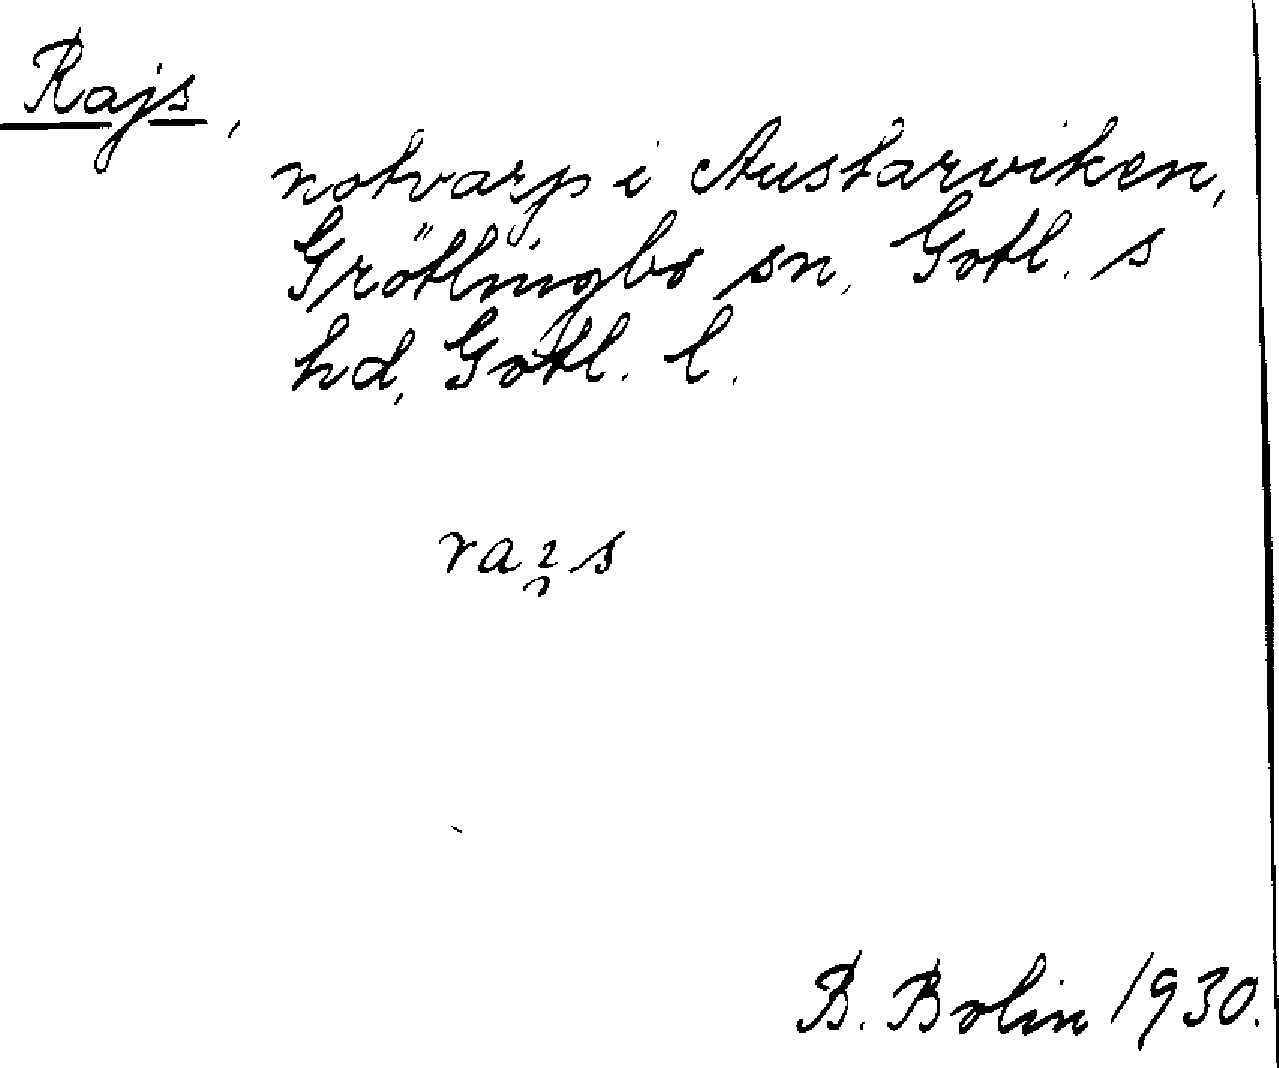 Rajs,
notvarp i Austarviken,
Grötlingbo sn, Gotl. s
hd, Gotl. l.
raı̯s
B. Bolin 1930.